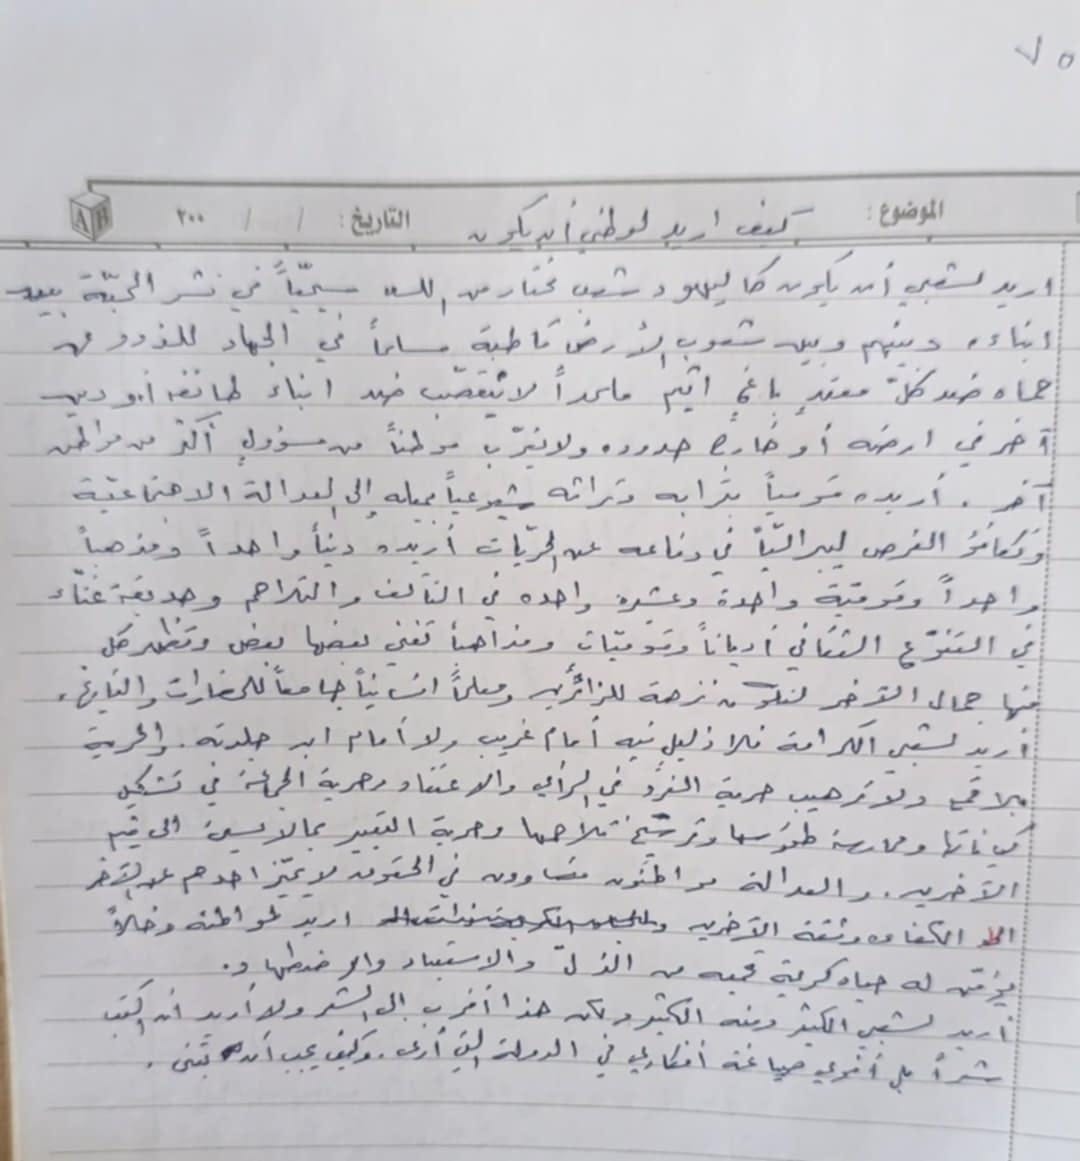 ٧٥
الموضوع: كيف اريد لوطني أن يكون التاريخ: / / ٢٠٠
AH
اريد لشعبي أن يكون كاليهود شعب مختار من الله مسيحيّاً في نشر المحبّة بين
ابناءه وبينهم وبين شعوب الأرض قاطبة مسلماً في الجهاد للذود عن
حماه ضد كلّ معتدٍ باغي اثيم ملحداً لا يتعصّب ضد ابناء طائفة أو دين
آخر في ارضه أو خارج حدوده ولا يقرّب موطناً من مسؤولٍ أكثر من مواطن
آخر . أريده قومياً بترابه وتراثه شيوعياً بميله إلى العدالة الاجتماعيّة
وتكافؤ الفرص ليبراليّاً في دفاعه عن الحرّيات أريده ديناً واحداً ومذهباً
واحداً وقوميّة واحدة وعشيرة واحده في التآلف والتلاحم وحديقة غنّاء
في التنوّع الثقافي أدياناً وقوميّات ومذاهباً تغني بعضها بعض وتظهر كل
منها جمال الآخر لتكون نزهة للزائرين ومعلماً انسانياً جامعاً للحضارات والتاريخ .
أريد لشعبي الكرامة فلا ذليل فيه أمام غريب ولا أمام ابن جلدته . والحرية
بلا قمع ولا ترهيب حرية الفرد في الرأي والاعتقاد وحرية الجماعة في تشكيل
كياناتها وممارسة طقوسها وترسيخ تلاحمها وحرية التعبير بما لا يسيئ الى قيم
الآخرين . والعدالة مواطنون متساوون في الحقوق لا يميّز احدهم عن الآخر
الا الكفاءه وثقة الآخرين اريد لمواطنه دخلاً
يؤمّن له حياه كريمة تحميه من الذلّ والاستعباد والاضطهاد .
أريد لشعبي الكثير ومنه الكثير وكان هذا أقرب إلى الشعر ولا أريد أن اكتب
شعراً بل أنوي صياغة أفكاري في الدولة التي أرى . وكيف يجب أن تبنى .